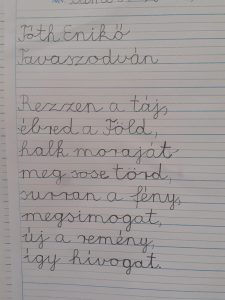 Tóth Enikő
Tavaszodván
Rezzen a táj,
ébred a Föld,
halk moraját
meg sose törd,
surran a fény,
megsimogat,
új a remény,
így hívogat.